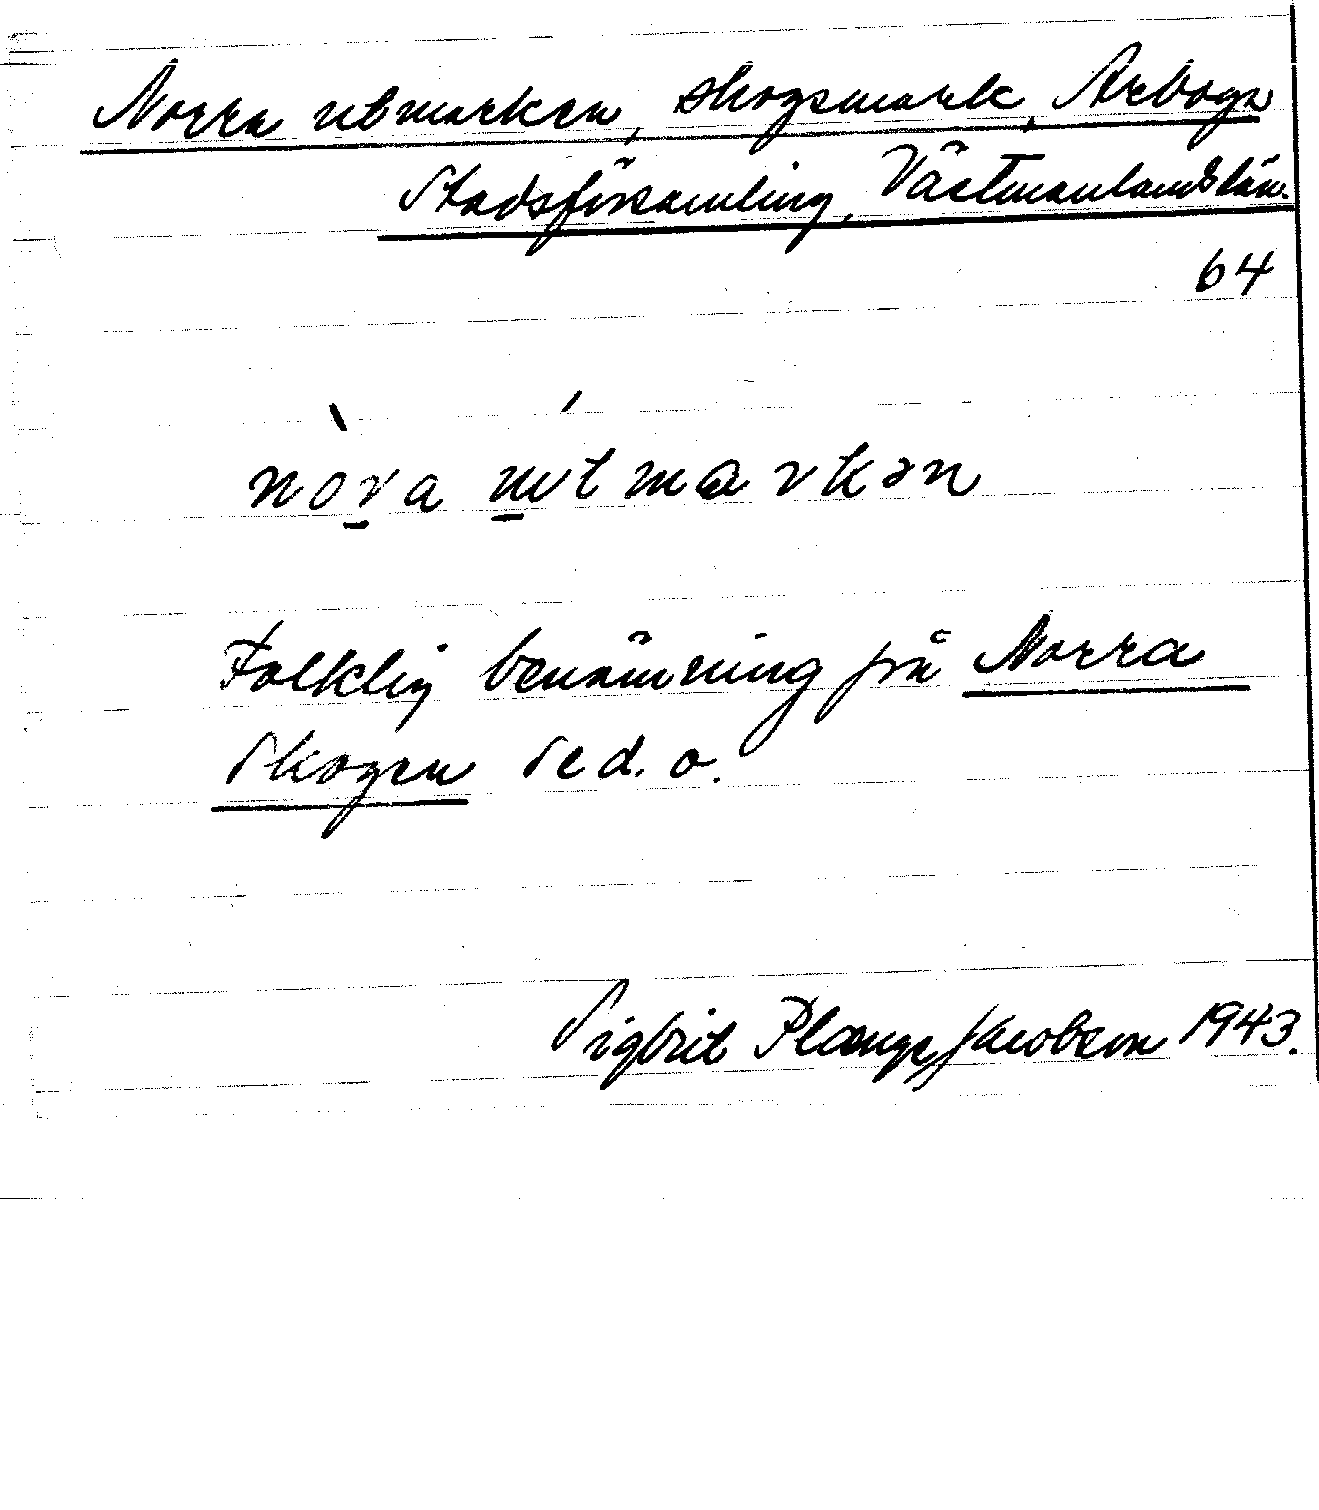 Norra utmarken, skogsmark, Arboga
Stadsförsamling, Västmanlands län.
64
nòra útmarkən
Folklig benämning på Norra
Skogen Se d. o.
Sigbrit Plænge Jacobson 1943.